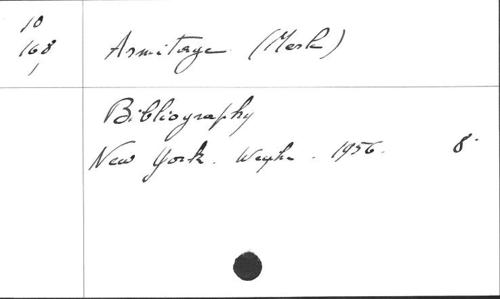 10
168
1
Armitage (Merle)
Bibliography
New York. Weyhe. 1956. 8°